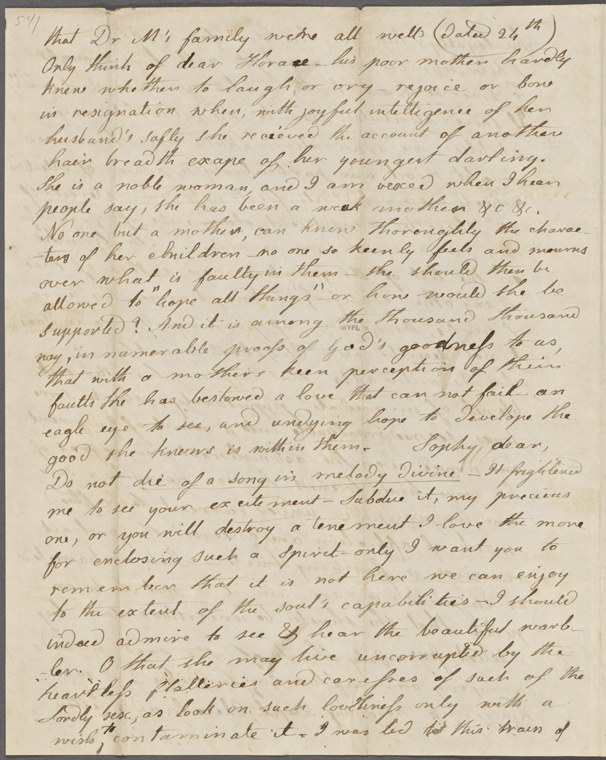 541
that Dr M's family were all well (dated 24th)
Only think of dear Horace - his poor mother hardly
knew whether to laugh or cry - rejoice or bow
in resignation when, with joyful intelligence of her
husband's safty she recieved the account of another
hair breadth escape of her youngest darling.
She is a noble woman, and I am vexed when I hear
people say, she has been a weak mother &c &c.
No one but a mother, can know thoroughly the charac-
ters of her children - no one so keenly feels and mourns
over what is faulty in them - she should then be
allowed to "hope all things" or how would she be
supported? And it is among the thousand thousand
nay, innumerable proofs of God's goodness to us,
that with a mothers keen perception of their
faults she has bestowed a love that can not fail - an
eagle eye to see, and undying hope to develope the
good she knows is within them. Sophy, dear,
Do not die of a song in melody divine - It frightened
me to see your excitement - Subdue it, my precious
one, or you will destroy a tenement I love the more
for enclosing such a spirit - only I want you to
remember that it is not here we can enjoy
to the extent of the soul's capabilities - I should
indeed admire to see & hear the beautiful warb-
ler. O that she may live uncorrupted by the
heartless flatteries and caresses of such of the
lordly sex, as look on such loveliness only with a
wish to contaminate it - I was led to this train of